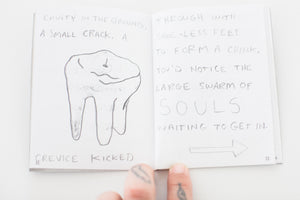 CAVITY IN THE GROUND,
A SMALL CRACK, A
CREVICE KICKED
THROUGH WITH
SHOE-LESS FEET
TO FORM A CHINK,
YOU'D NOTICE THE
LARGE SWARM OF
SOULS
WAITING TO GET IN.